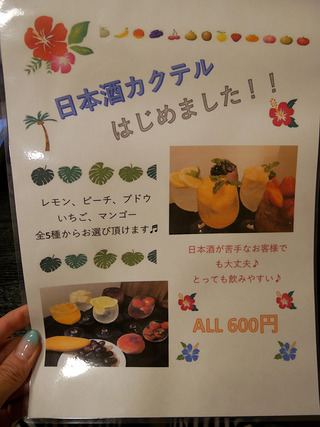 日本酒カクテル
はじめました！！
レモン、ピーチ、ブドウ
いちご、マンゴー
全5種からお選び頂けます♫
日本酒が苦手なお客様で
も大丈夫♪
とっても飲みやすい♪
ALL 600円